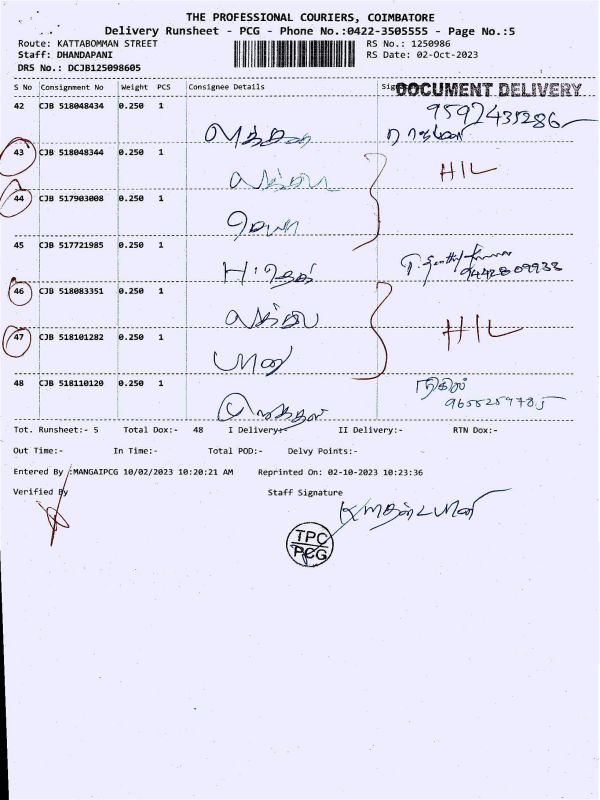 THE PROFESSIONAL COURIERS, COIMBATORE
Delivery Runsheet - PCG - Phone No.:0422-3505555 - Page No.:5
Route: KATTABOMMAN STREET RS No.: 1250986
Staff: DHANDAPANI RS Date: 02-Oct-2023
DRS No.: DCJB125098605
S No Consignment No Weight PCS Consignee Details Sig
DOCUMENT DELIVERY
42 CJB 518048434 0.250 1 9597435286
43 CJB 518048344 0.250 1 H/L
44 CJB 517903008 0.250 1
45 CJB 517721985 0.250 1
9442809933
46 CJB 518083351 0.250 1
47 CJB 518101282 0.250 1 H/L
48 CJB 518110120 0.250 1
Tot. Runsheet:- 5 Total Dox:- 48 I Delivery:- II Delivery:- RTN Dox:-
Out Time:- In Time:- Total POD:- Delvy Points:-
Entered By :MANGAIPCG 10/02/2023 10:20:21 AM Reprinted On: 02-10-2023 10:23:36
Verified By Staff Signature
TPC
PCG